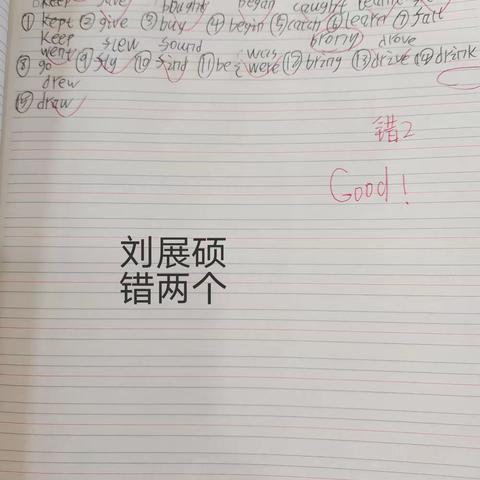 began caught
① kept ② give ③ buy ④ begin ⑤ catch ⑥ learn ⑦ fall
keep
went flew found was drove
⑧ go ⑨ fly ⑩ find ⑪ be were ⑫ bring ⑬ drive ⑭ drink
drew
⑮ draw
错2
Good!
刘展硕
错两个